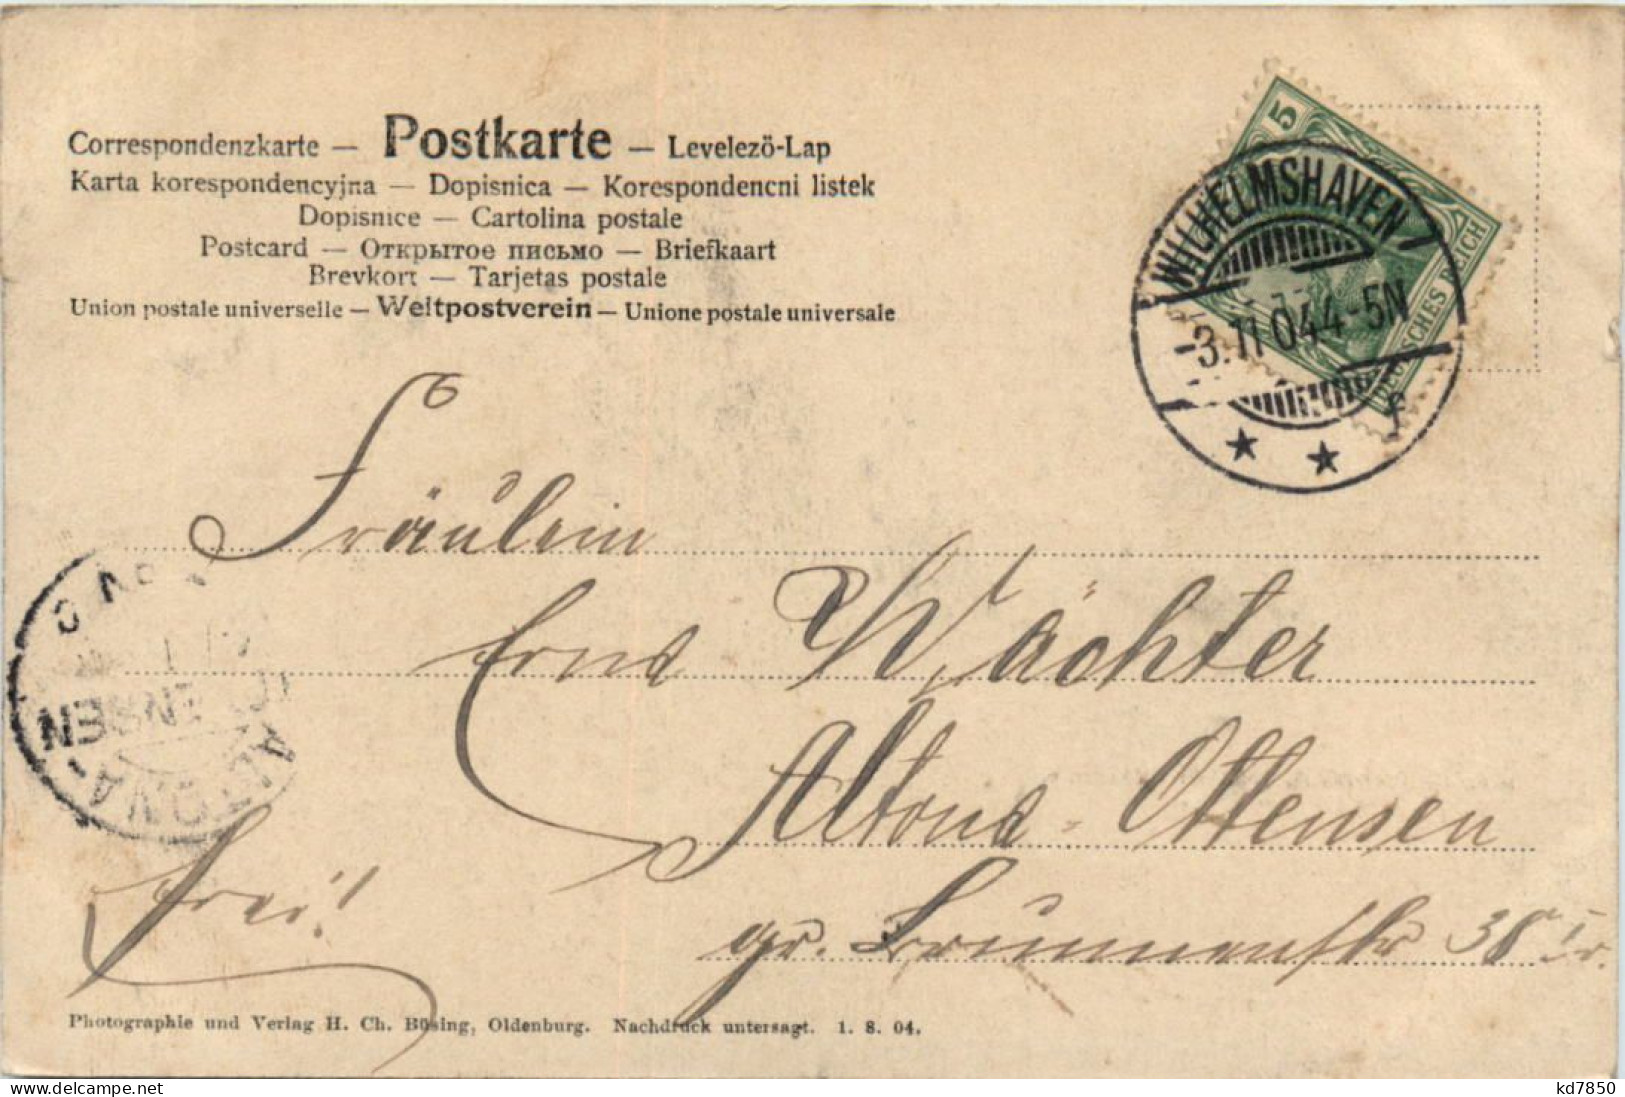 Correspondenzkarte — Postkarte — Levelezö-Lap
Karta korespondencyjna — Dopisnica — Korespondencni listek
Dopisnice — Cartolina postale
Postcard — Открытое письмо — Briefkaart
Brevkort — Tarjetas postale
Union postale universelle — Weltpostverein — Unione postale universale
5
DEUTSCHES REICH
WILHELMSHAVEN
-3.11.04 4-5N
f
Fräulein
Erna Wächter
Altona-Ottensen
gr. Brunnenstr 38 I r.
frei!
ALTONA-
Photographie und Verlag H. Ch. Büsing, Oldenburg. Nachdruck untersagt. 1. 8. 04.
kd7850
www.delcampe.net